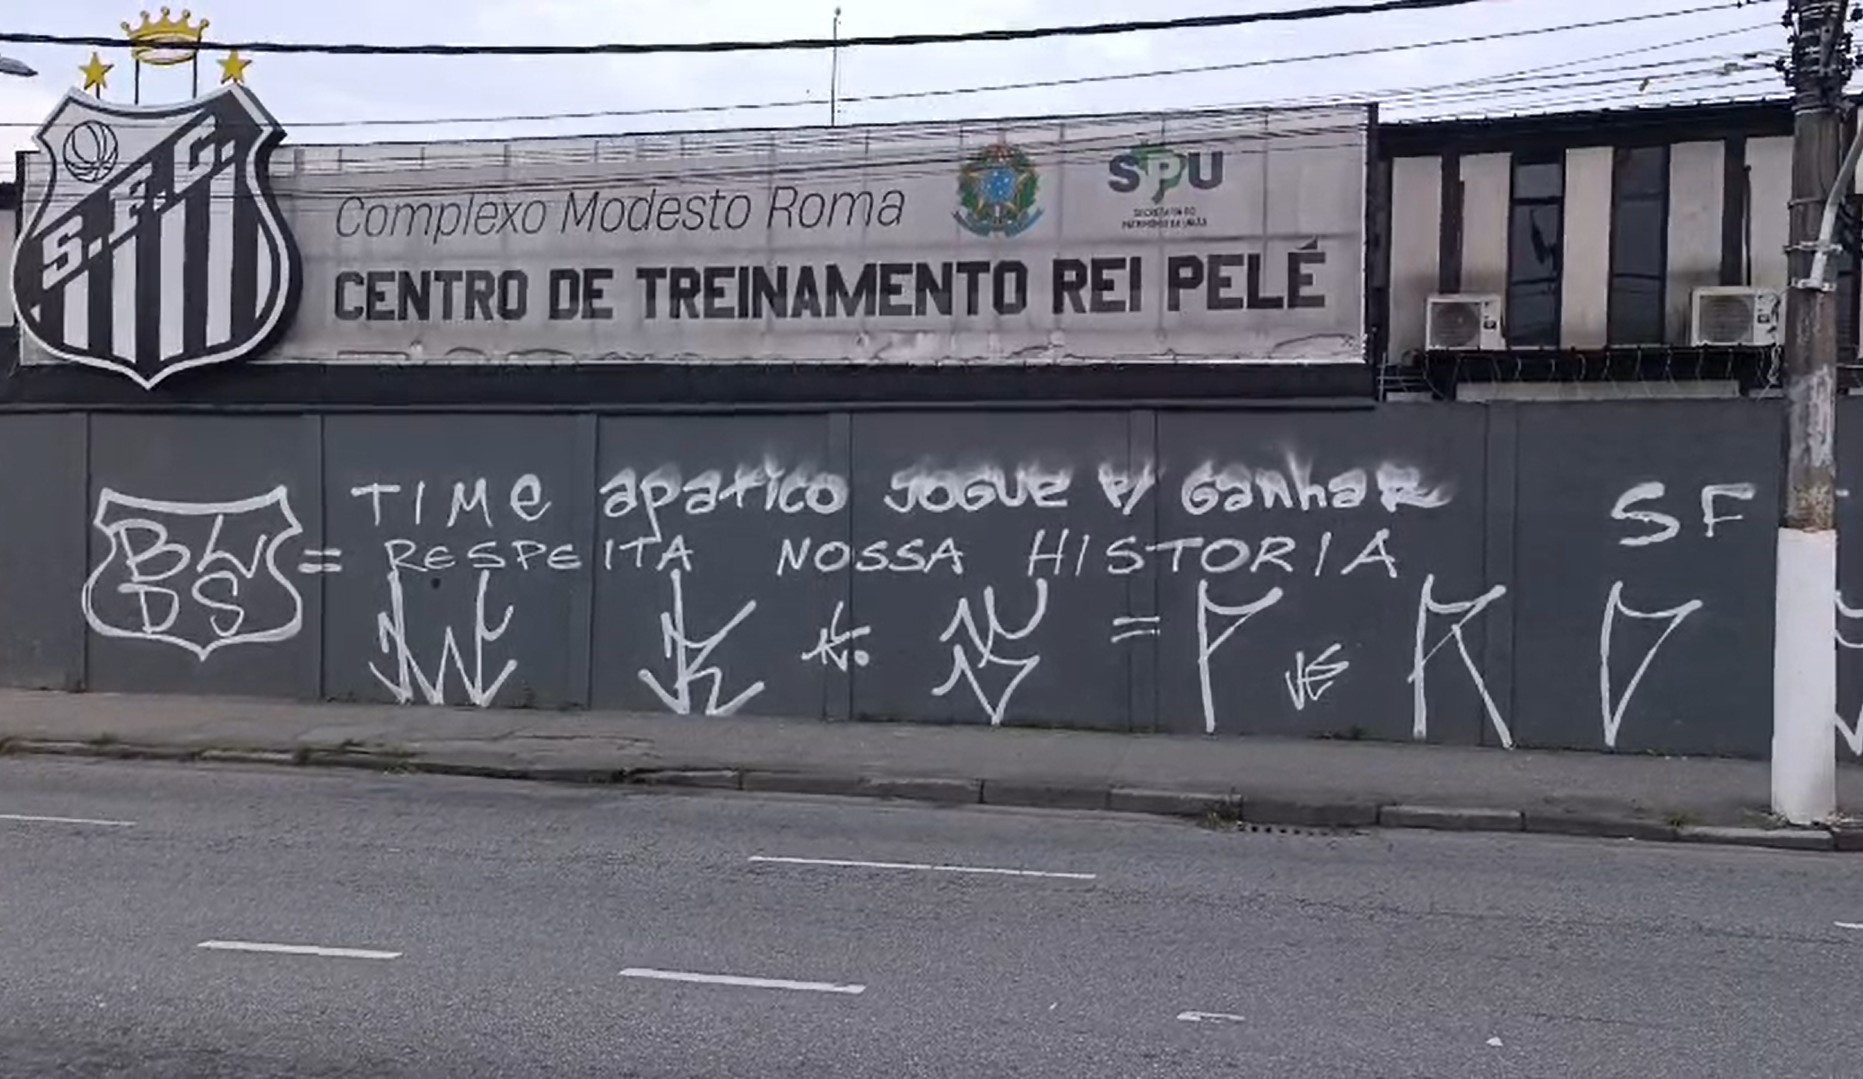 S.F.C.
Complexo Modesto Roma
SPU
SECRETARIA DO
PATRIMÔNIO DA UNIÃO
CENTRO DE TREINAMENTO REI PELÉ
TIMe apatico JOGUE P/ GanhaR
SF
= RESPEITA NOSSA HISTORIA
BL
DS